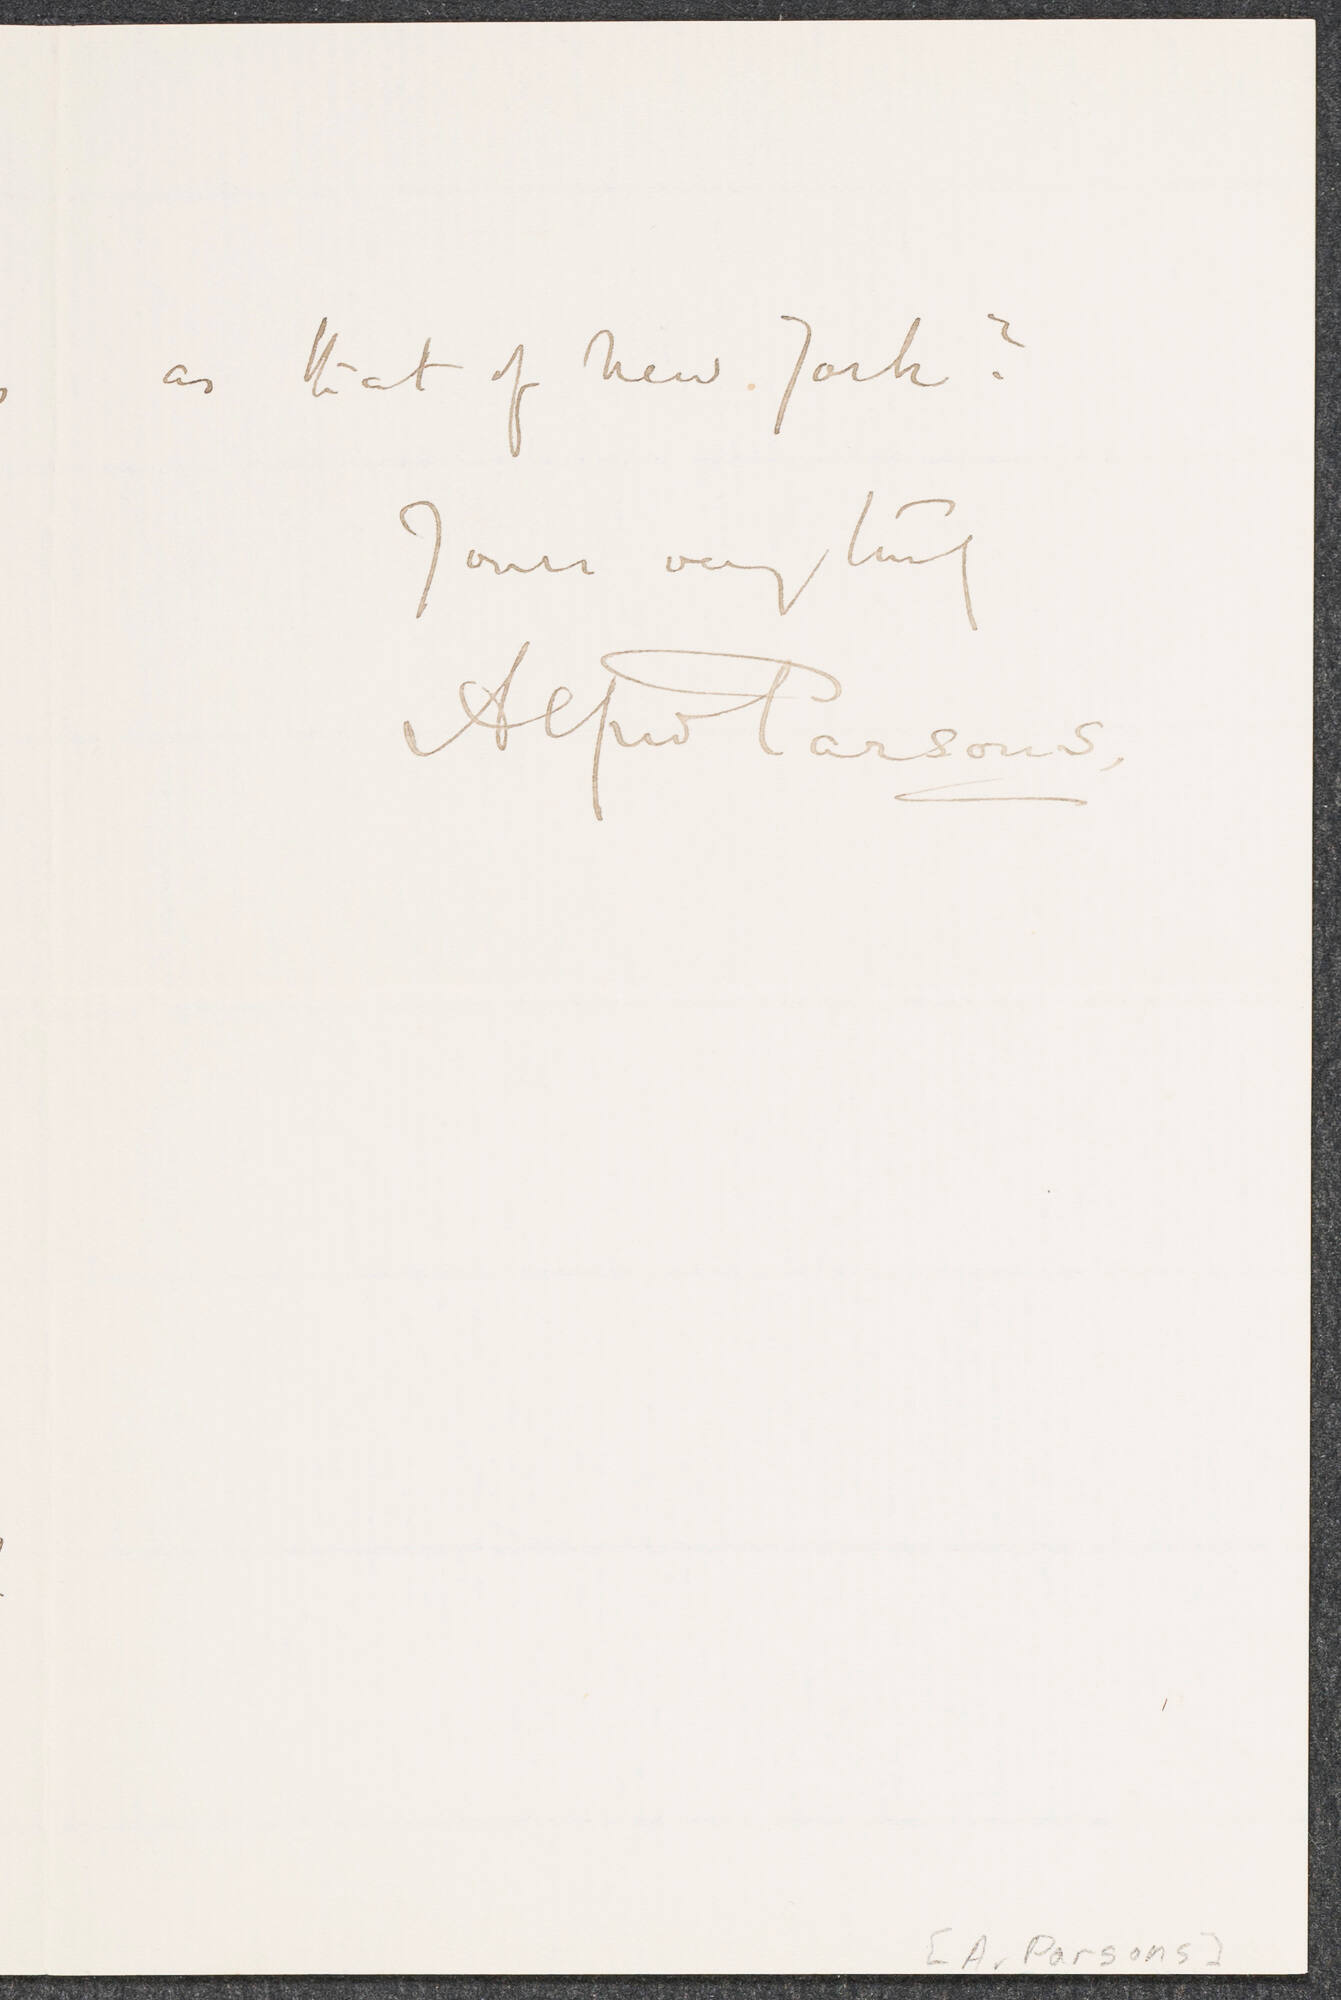 as that of New York?
Yours very truly
Alfred Parsons,
[A. Parsons]